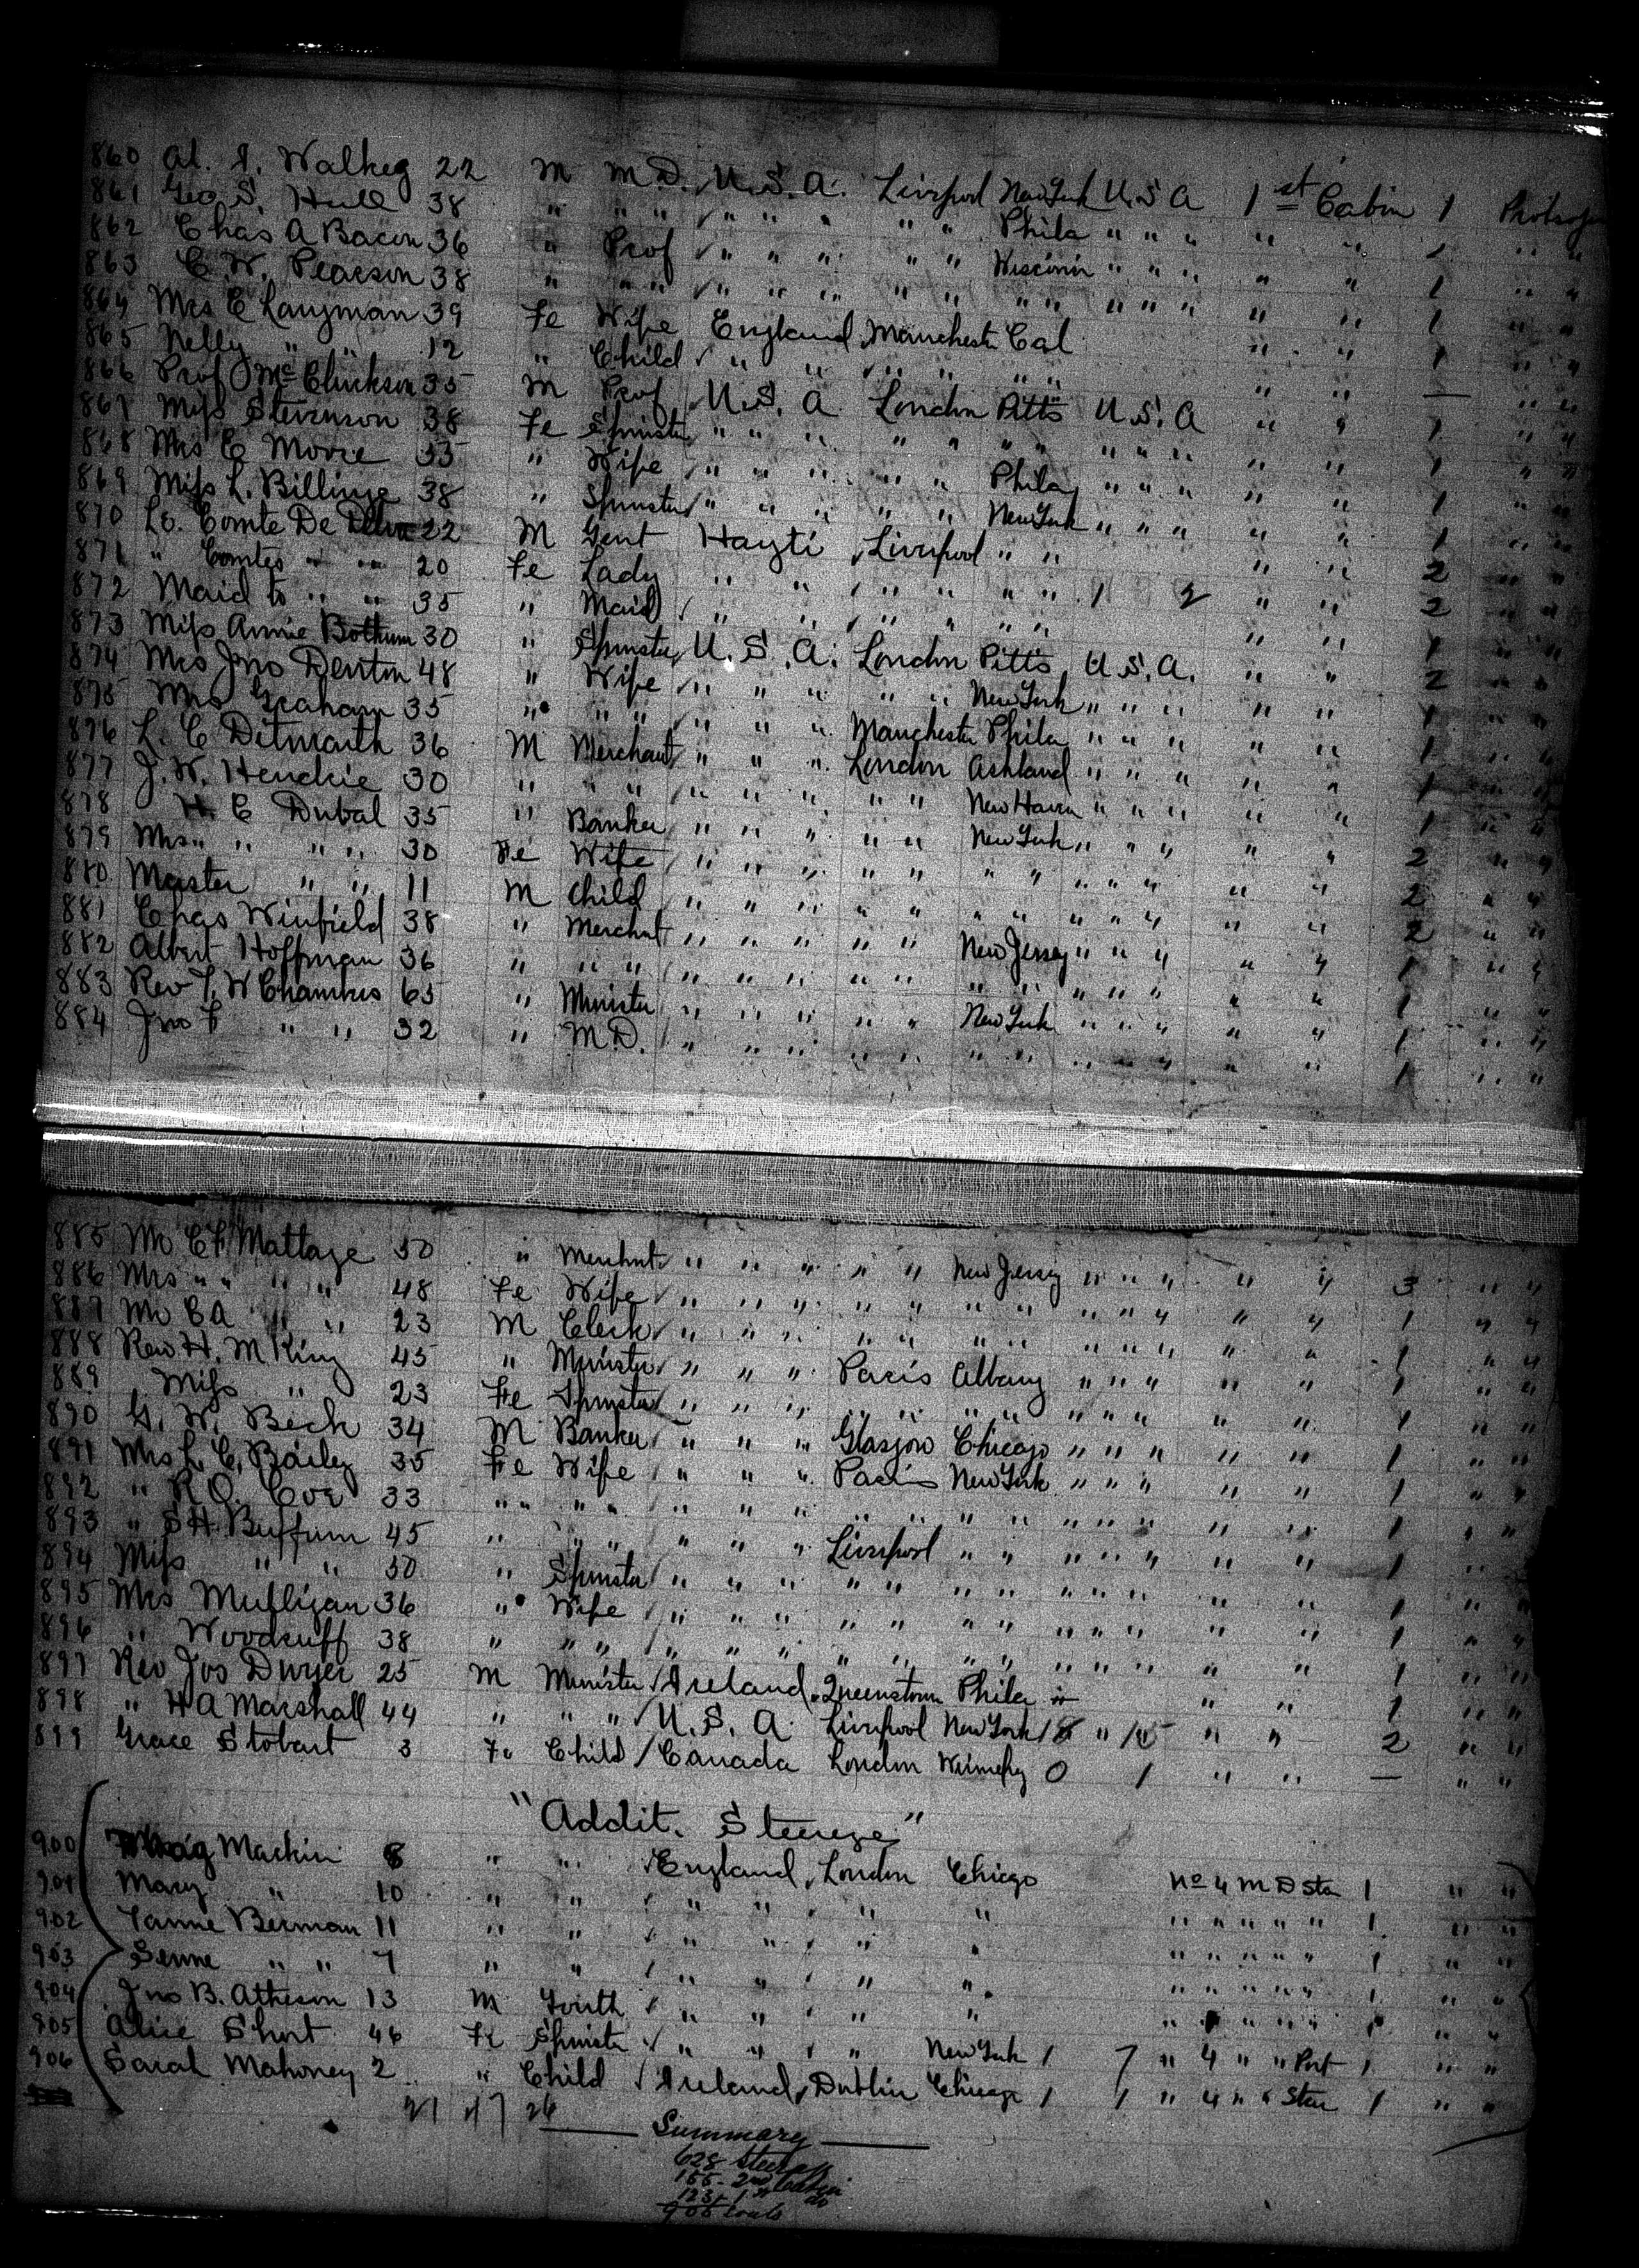 860 Al. S. Walkeg 22 M M.D. U.S.A. Liverpool New York U.S.A 1st Cabin 1
861 Geo S. Hull 38 " " " " " " " " Phila " " " " " 1 " "
862 Chas A Bacon 36 " Prof " " " " " Wisconsin " " " " " 1 " "
863 C. W. Pearson 38 " " " " " " " " " " " " " " " 1 " "
864 Mrs E Langman 39 Fe Wife England Manchester Cal " " 1 " "
865 Nelly " " 12 " Child " " " " " " " " — " "
866 Prof J Mc Clurkson 35 M Prof U.S.A London Pitts U.S.A " " 1 " "
867 Miss Stevenson 38 Fe Spinster " " " " " " " " " " " " 1 " "
868 Mrs E Moore 33 " Wife " " " " " Phila " " " " " 1 " "
869 Miss L. Billinge 38 " Spinster " " " " " New York " " " " " 1 " "
870 Le. Comte De 22 M Gent Hayti Liverpool " " " " 2 " "
871 " Comtes " " 20 Fe Lady " " " " " " 1 2 " " 2 " "
872 Maid to " " 35 " Maid " " " " " " " " 1 " "
873 Miss Annie 30 " Spinster U.S.A. London Pitts U.S.A. " " 2 " "
874 Mrs Jno Denton 48 " Wife " " " " " New York " " " " " 1 " "
875 Mrs Graham 35 " " " " " " Manchester Phila " " " " " 1 " "
876 L. C Ditmarth 36 M Merchant " " " London Ashland " " " " " 1 " "
877 J. W. Hendrie 30 " " " " " " " " New Haven " " " " " 1 " "
878 H C Dubal 35 " Banker " " " " " New York " " " " " 2 " "
879 Mrs " " " " 30 Fe Wife " " " " " " " " " " " " 2 " "
880 Master " " 11 M Child " " " " " " " " " " " " 2 " "
881 Chas Winfield 38 " Merchnt " " " " " New Jersey " " " " " 1 " "
882 Albert Hoffman 36 " " " " " " " " " " " " " " " 1 " "
883 Rev T. W Chambers 65 " Minister " " " " " New York " " " " " 1 " "
884 Jno F " " 32 " M.D. " " " " " " " " " " " " 1 " "
885 Mr C F. Mattage 50 " Merchnt " " " " " New Jersey " " " " " 3 " "
886 Mrs " " " " 48 Fe Wife " " " " " " " " " " " " 1 " "
887 Mr C A " " 23 M Clerk " " " " " " " " " " " " 1 " "
888 Rev H. M King 45 " Minister " " " Paris Albany " " " " " 1 " "
889 Miss " 23 Fe Spinster " " " " " " " " " " " " 1 " "
890 G. W. Beck 34 M Banker " " " Glasgow Chicago " " " " " 1 " "
891 Mrs L. C. Bailey 35 Fe Wife " " " Paris New York " " " " " 1 " "
892 " R O. Coe 33 " " " " " " " " " " " " " " " " 1 " "
893 " S H. Buffum 45 " " " " " " Liverpool " " " " " " " 1 " "
894 Miss " " 50 " Spinster " " " " " " " " " " " " 1 " "
895 Mrs Mulligan 36 " Wife " " " " " " " " " " " " 1 " "
896 " Woodruff 38 " " " " " " " " " " " " " " " 1 " "
897 Rev Jos Dwyer 25 M Minister Ireland Queenstown Phila " " 1 " "
898 " H A Marshall 44 " " " U.S.A. Liverpool New York " " " 2 " "
899 Grace Stobart 3 Fe Child Canada London Winnipeg 0 1 " " — " "
"Addit. Steerage"
900 Mackin 8 " " England London Chicago No 4 M D Star 1 " "
901 Mary " 10 " " " " " " " " " " " " 1 " "
902 Berman 11 " " " " " " " " " " " 1 " "
903 " " 7 " " " " " " " " " " " 1 " "
904 Jno B. Atherson 13 M Youth " " " " " " " " " "
905 Alice Short 46 Fe Spinster " " " New York 1 7 " 4 " " Port 1 " "
906 Sarah Mahoney 2 " Child Ireland Dublin Chicago 1 1 " 4 " " Star 1 " "
21 47 26
Summary
628 Steerage
155 2nd Cabin
123 1st do
906 souls